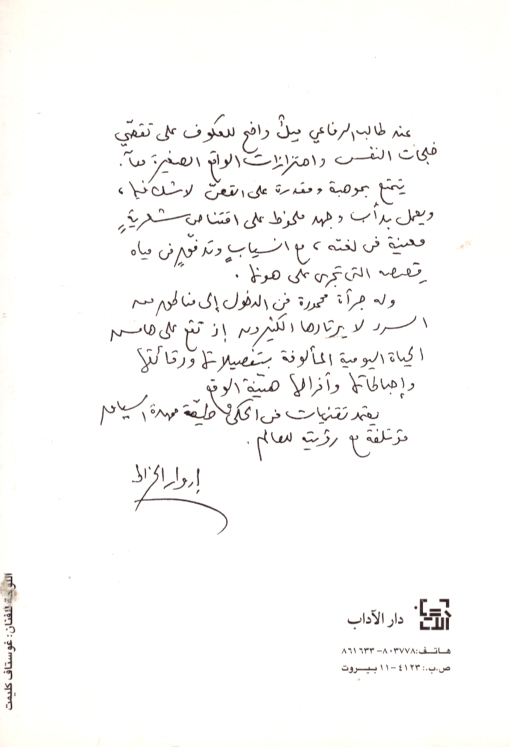 عند طالب الرفاعي ميلٌ واضح للعكوف على تقصّي
خلجات النفس واهتزازات الواقع الصغيرة معاً.
يتمتع بموهبة ومقدرة على القصّ لا شك فيها،
ويعمل بدأب وجهد ملحوظ على اقتناص شعريةٍ
معينة في لغته، مع انسيابٍ وتدفّقٍ في مياه
قصصه التي تجري على هونها.
وله جرأة محمودة في الدخول إلى مناطق من
السرد لا يرتادها الكثيرون إذ تقع على هامش
الحياة اليومية المألوفة بتفصيلاتها ودقائقها
وإحباطاتها وأفراحها هيّنة الوقع
يعتمد تقنيات في الحكي السياق
مؤتلفة مع رؤيته للعالم.
إدوار الخراط
اللوحة للفنان: غوستاف كليمت
دار الآداب
هاتف: ٨٠٣٧٧٨-٨٦١٦٣٣
ص.ب.: ٤١٢٣-١١ بيروت